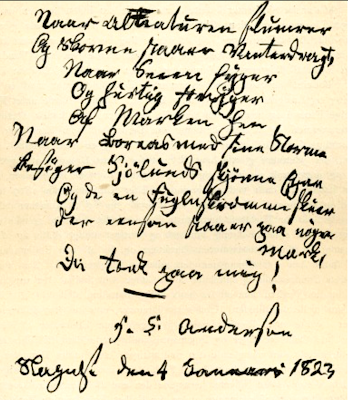 Naar al Naturen slumrer
Og Skovene staaer Vinterdragt,
Naar Sneen fyger
Og hurtig stryger
Af Marken hen
Naar Boreas med sine Storme
Besøger Sjölunds skjönne Egn
Og de en Fugleskræmme skuer
Der eensom staaer paa nögen
Mark,
Da tænk paa mig!
H. C. Andersen
Slagels. den 4 Januari 1823